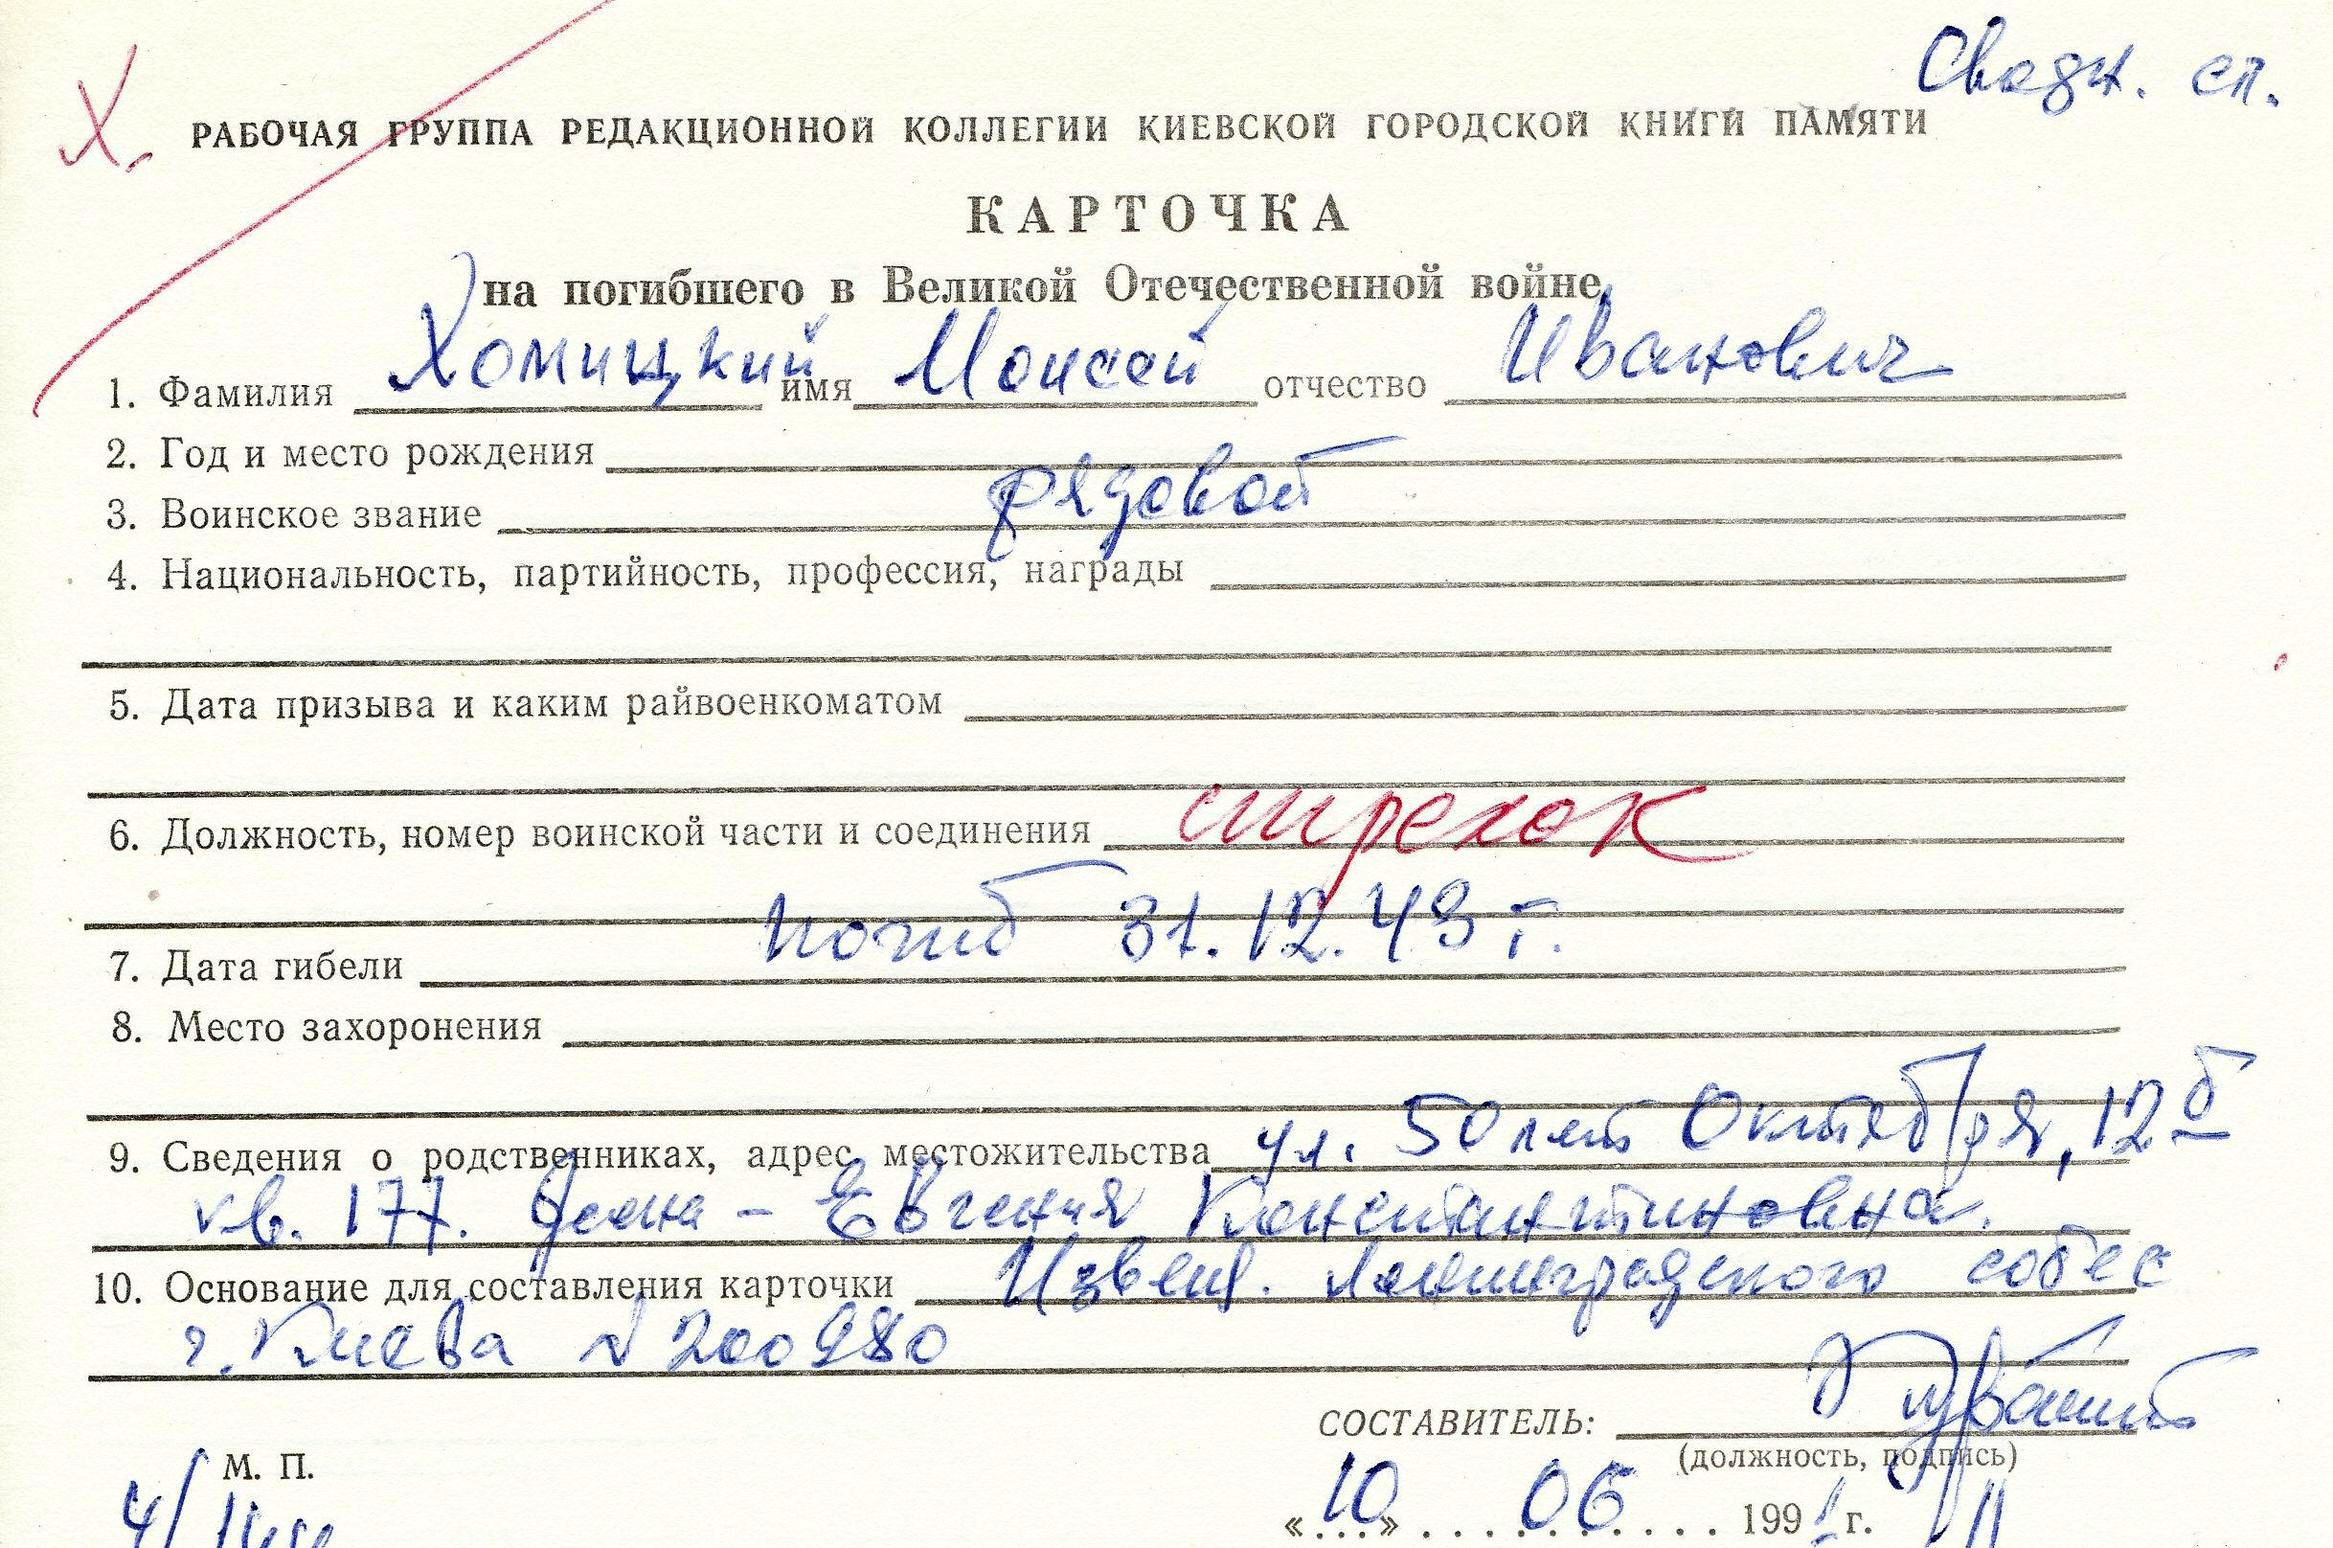 сп.
Х. РАБОЧАЯ ГРУППА РЕДАКЦИОННОЙ КОЛЛЕГИИ КИЕВСКОЙ ГОРОДСКОЙ КНИГИ ПАМЯТИ
КАРТОЧКА
на погибшего в Великой Отечественной войне
1. Фамилия Хомицкий имя Моисей отчество Иванович
2. Год и место рождения
3. Воинское звание рядовой
4. Национальность, партийность, профессия, награды
5. Дата призыва и каким райвоенкоматом
6. Должность, номер воинской части и соединения стрелок
7. Дата гибели погиб 31.12.43 г.
8. Место захоронения
9. Сведения о родственниках, адрес местожительства ул. 50 лет Октября, 12б
кв. 177. Жена - Евгения Константиновна.
10. Основание для составления карточки Извещ. Ленинградского собес
г. Киева N 200980
СОСТАВИТЕЛЬ:
(должность, подпись)
М. П.
«10» 06 1991 г.